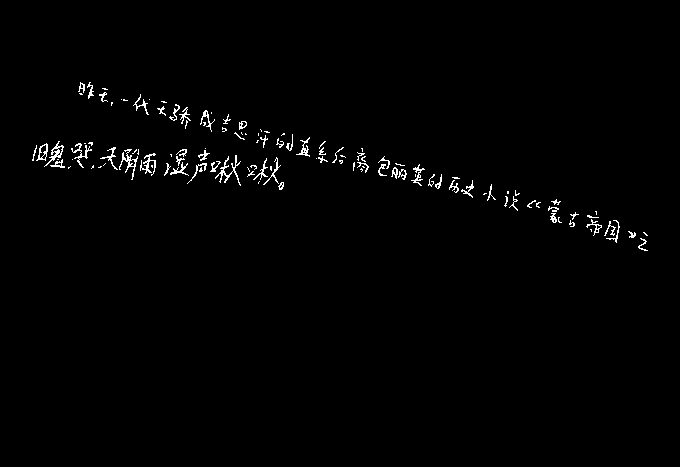 昨天,一代天骄成吉思汗的直系后裔包丽英的历史小说《蒙古帝国》之
旧鬼哭,天阴雨湿声啾啾。